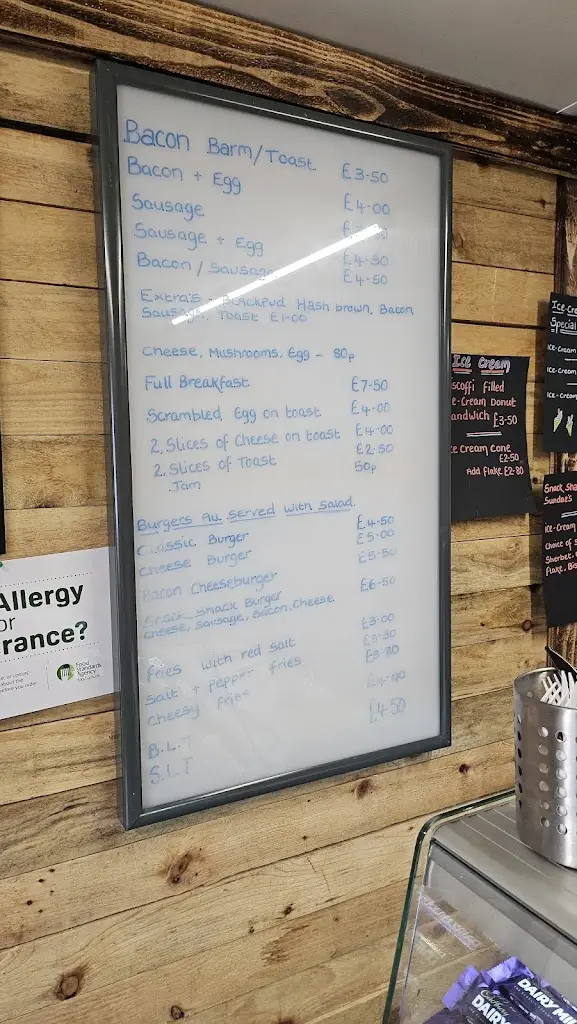 Bacon Barm/Toast £3-50
Bacon + Egg £4-00
Sausage
Sausage + Egg £4-30
Bacon / Sausage £4-50
Extra's - Blackpud Hash brown, Bacon
Sausage, Toast £1-00
Cheese, Mushrooms, Egg - 80p
Full Breakfast £7-50
Scrambled Egg on toast £4-00
2. Slices of Cheese on toast £4-00
2. Slices of Toast £2-50
Jam 50p
Burgers All Served with Salad.
Classic Burger £4-50
Cheese Burger £5-00
Bacon Cheeseburger £5-50
Snack Shack Burger £6-50
Cheese, Sausage, Bacon, Cheese
Fries with red salt £3-00
Salt + pepper fries
Cheesy Fries
B.L.T
S.L.T £4-50
Allergy
or
rance?
Food
Standards
Agency
Ice Cream
scoffi filled
e-Cream Donut
andwich £3-50
ce cream cone
£2-50
Add flake £2-80
Ice-Cre
Special
Ice-Cream
Ice-Cream
Ice-Cream
Snack Sha
Sundae's
Ice-Cream
Choice of S
Sherbet,
flake, Bis
Cadbury
DAIRY MI
DAIRY